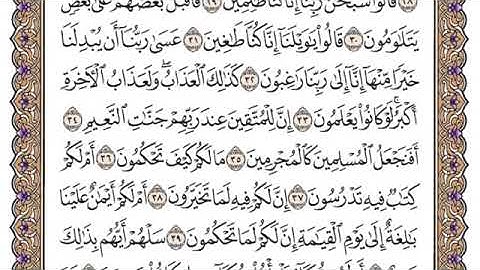 ٢٨ قَالُوا۟ سُبْحَٰنَ رَبِّنَآ إِنَّا كُنَّا ظَٰلِمِينَ ٢٩ فَأَقْبَلَ بَعْضُهُمْ عَلَىٰ بَعْضٍ
يَتَلَٰوَمُونَ ٣٠ قَالُوا۟ يَٰوَيْلَنَآ إِنَّا كُنَّا طَٰغِينَ ٣١ عَسَىٰ رَبُّنَآ أَن يُبْدِلَنَا
خَيْرًا مِّنْهَآ إِنَّآ إِلَىٰ رَبِّنَا رَٰغِبُونَ ٣٢ كَذَٰلِكَ ٱلْعَذَابُ ۖ وَلَعَذَابُ ٱلْءَاخِرَةِ
أَكْبَرُ ۚ لَوْ كَانُوا۟ يَعْلَمُونَ ٣٣ إِنَّ لِلْمُتَّقِينَ عِندَ رَبِّهِمْ جَنَّٰتِ ٱلنَّعِيمِ ٣٤
أَفَنَجْعَلُ ٱلْمُسْلِمِينَ كَٱلْمُجْرِمِينَ ٣٥ مَا لَكُمْ كَيْفَ تَحْكُمُونَ ٣٦ أَمْ لَكُمْ
كِتَٰبٌ فِيهِ تَدْرُسُونَ ٣٧ إِنَّ لَكُمْ فِيهِ لَمَا تَخَيَّرُونَ ٣٨ أَمْ لَكُمْ أَيْمَٰنٌ عَلَيْنَا
بَٰلِغَةٌ إِلَىٰ يَوْمِ ٱلْقِيَٰمَةِ ۙ إِنَّ لَكُمْ لَمَا تَحْكُمُونَ ٣٩ سَلْهُمْ أَيُّهُم بِذَٰلِكَ